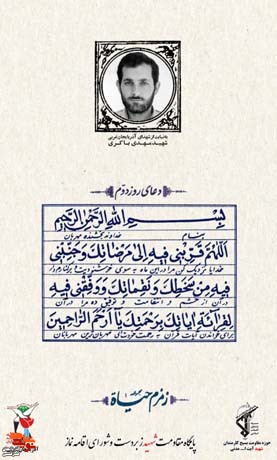 به نیابت از شهدای آذربایجان غربی
شهید مهدی باکری
دعای روز دوم
بِسْمِ اللهِ الرَّحْمنِ الرَّحیمِ
بنام خداوند بخشنده مهربان
اَللّهُمَّ قَرِّبْنی فیهِ اِلی مَرْضاتِکَ وَ جَنِّبْنی
خدایا نزدیک کن مرا در این ماه به سوی خوشنودیت و برکنارم دار
فیهِ مِنْ سَخَطِکَ وَ نَقِماتِکَ وَ وَفِّقْنی فیهِ
در آن از خشم و انتقامت و توفیق ده مرا در آن
لِقِرآئَةِ ایاتِکَ بِرَحْمَتِکَ یا اَرْحَمَ الرَّاحِمینَ
برای خواندن آیات قرآن به رحمت خودت ای مهربان‌ترین مهربانان
زمزم حیات
حوزه مقاومت بسیج کارمندان
پایگاه مقاومت شهید زبردست و شورای اقامه نماز